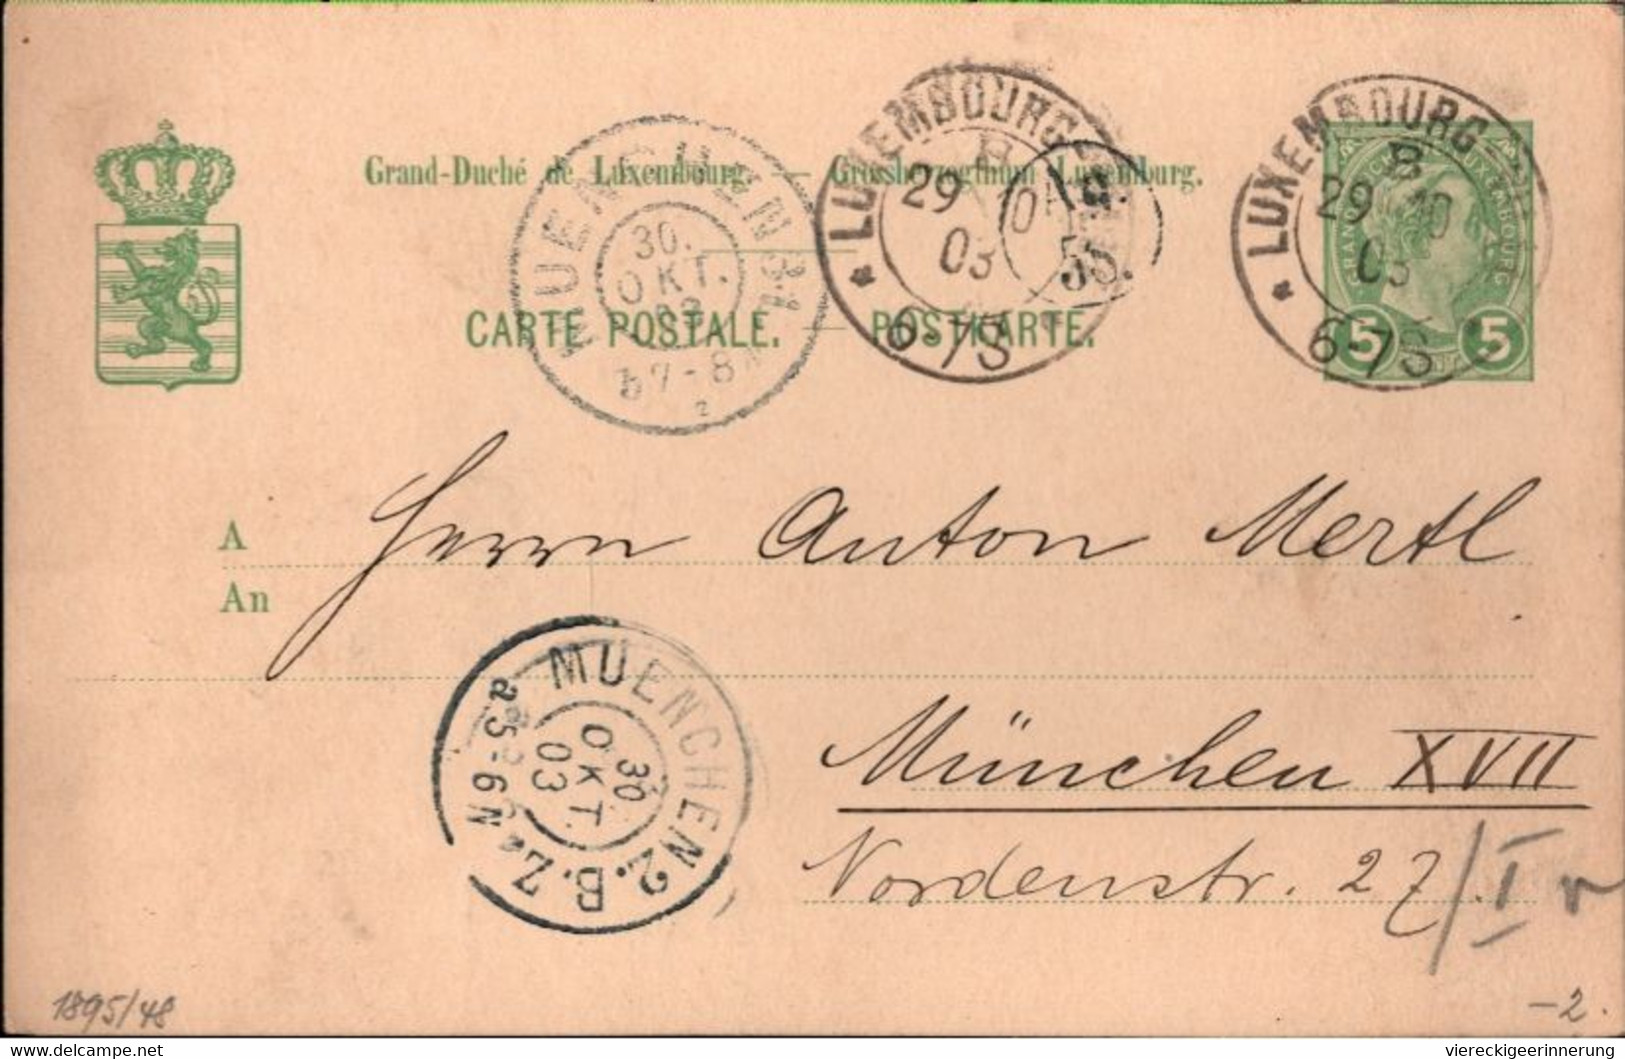 Grand-Duché de Luxembourg. — Grossherzogthum Luxemburg.
CARTE POSTALE. — POSTKARTE.
MUENCHEN 31
30.
OKT.
03
7-8
LUXEMBOURG
B
29 10
03
6-7S
Ag.
55.
LUXEMBOURG
B
29 10
03
6-7S
5 5
A Herrn Anton Mertl
An
MUENCHEN 2. B.Z.
30
OKT.
03
a. 5-6 N
München XVII
Nordenstr. 27/I r
1895/48
-2.
delcampe.net
viereckigeerinnerung